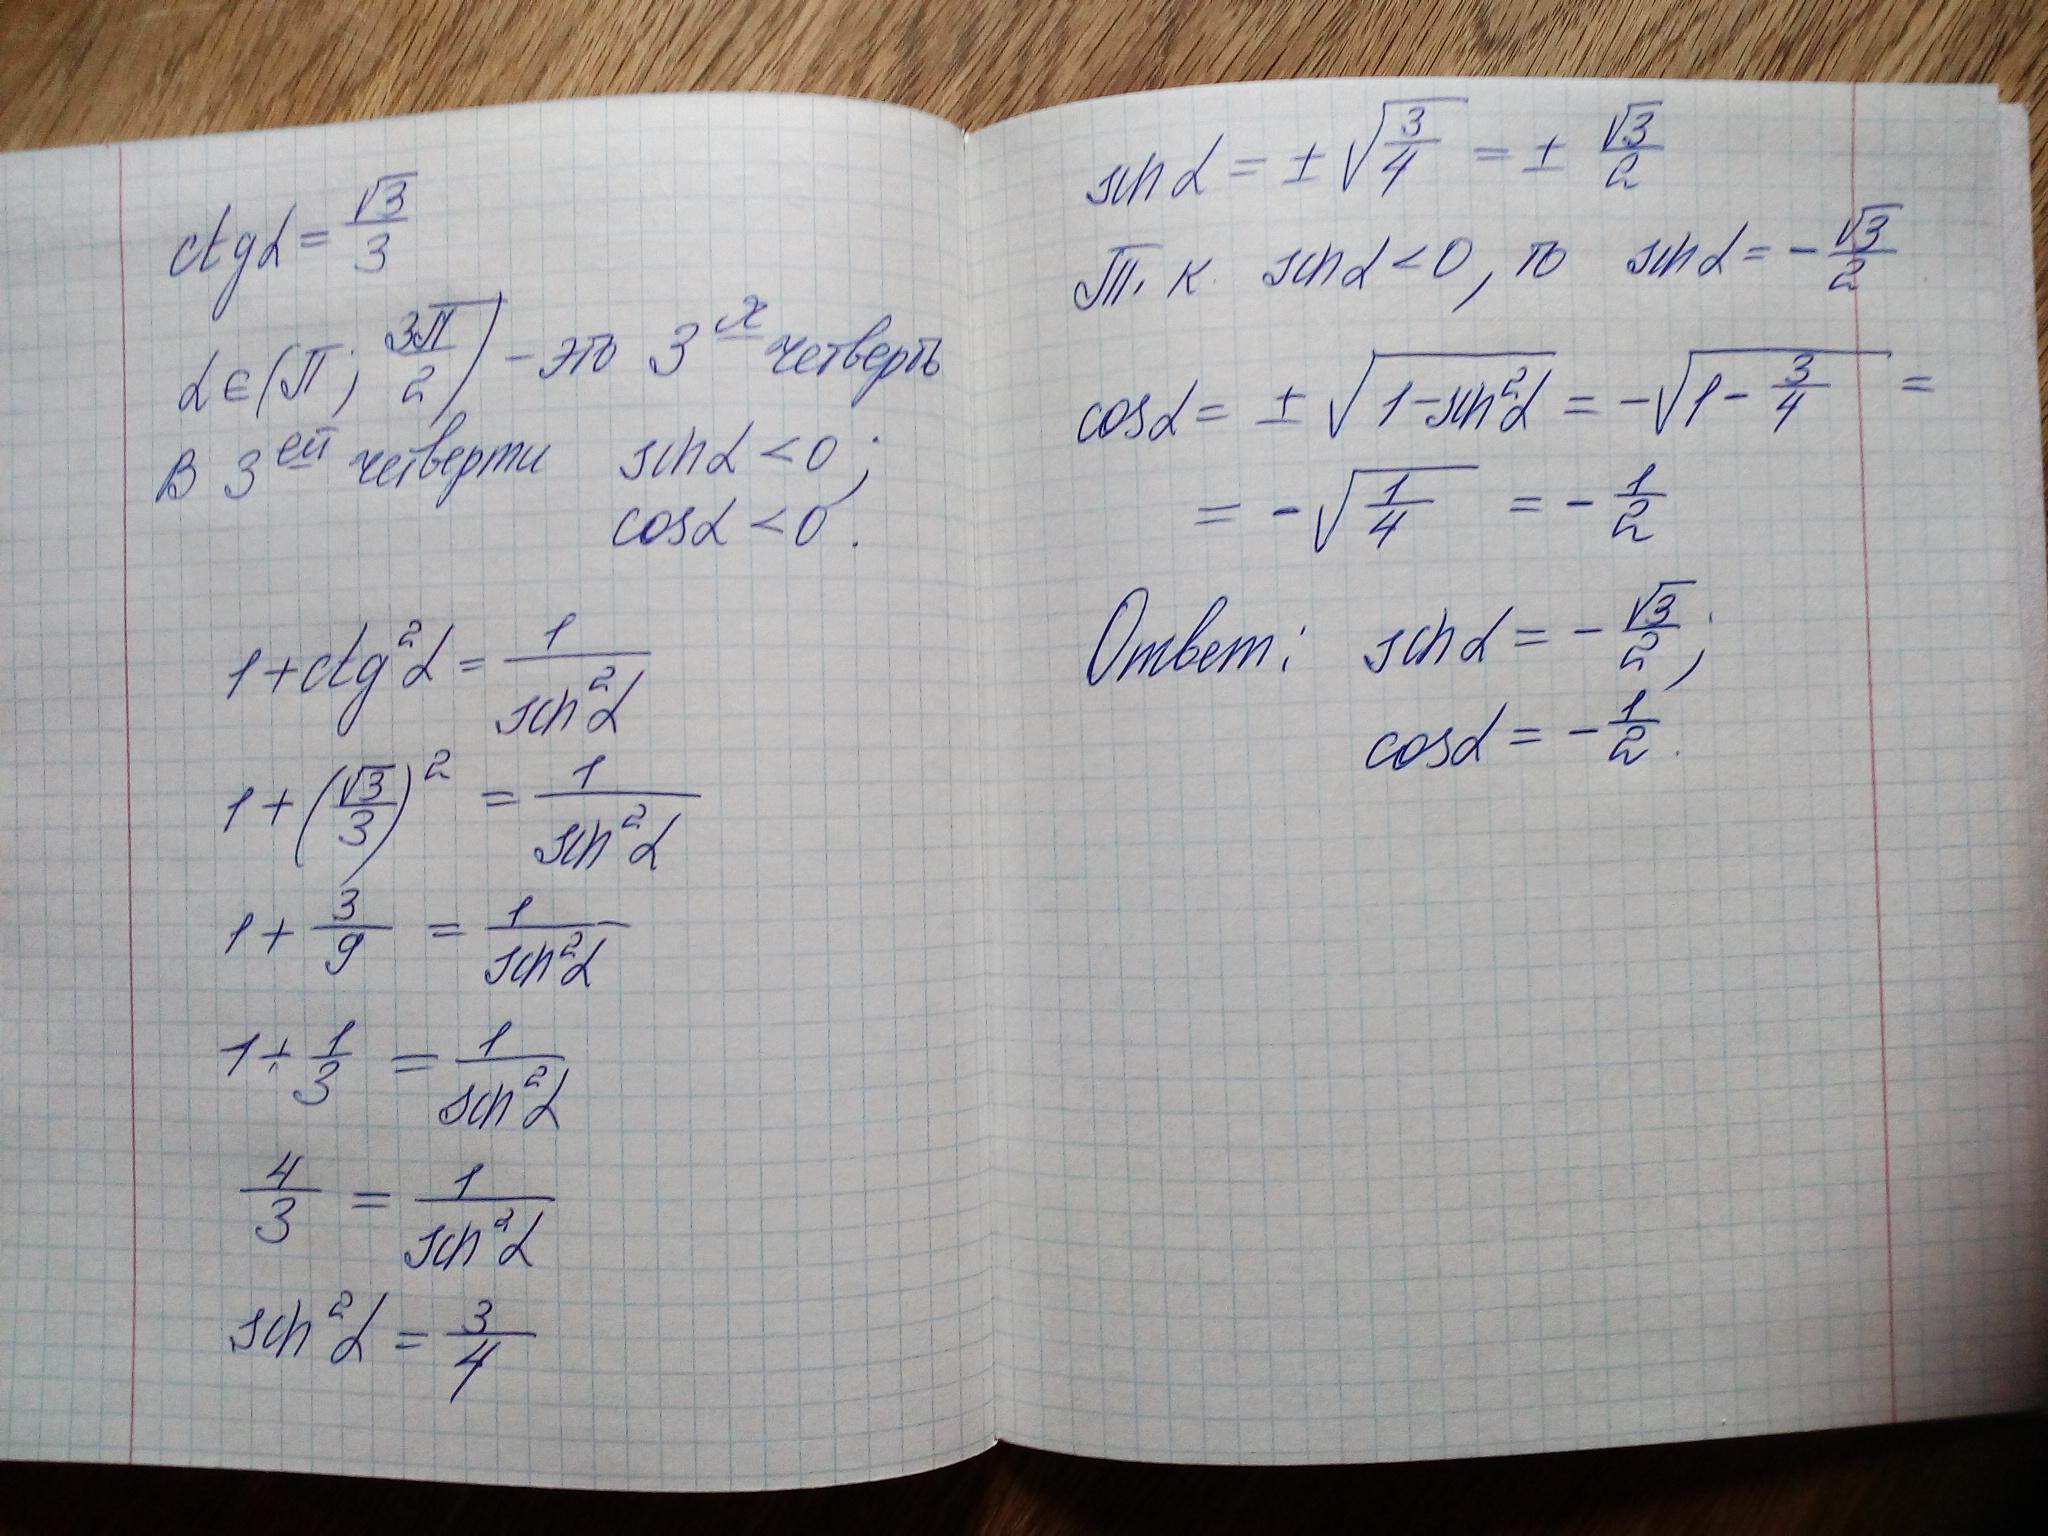 ctgα = √3/3
α ∈ (π; 3π/2) - это 3я четверть
В 3ей четверти sinα < 0;
cosα < 0.
1 + ctg²α = 1/sin²α
1 + (√3/3)² = 1/sin²α
1 + 3/9 = 1/sin²α
1 + 1/3 = 1/sin²α
4/3 = 1/sin²α
sin²α = 3/4
sinα = ± √(3/4) = ± √3/2
Т.к. sinα < 0, то sinα = - √3/2
cosα = ± √(1 - sin²α) = - √(1 - 3/4) =
= - √(1/4) = - 1/2
Ответ: sinα = - √3/2;
cosα = - 1/2.